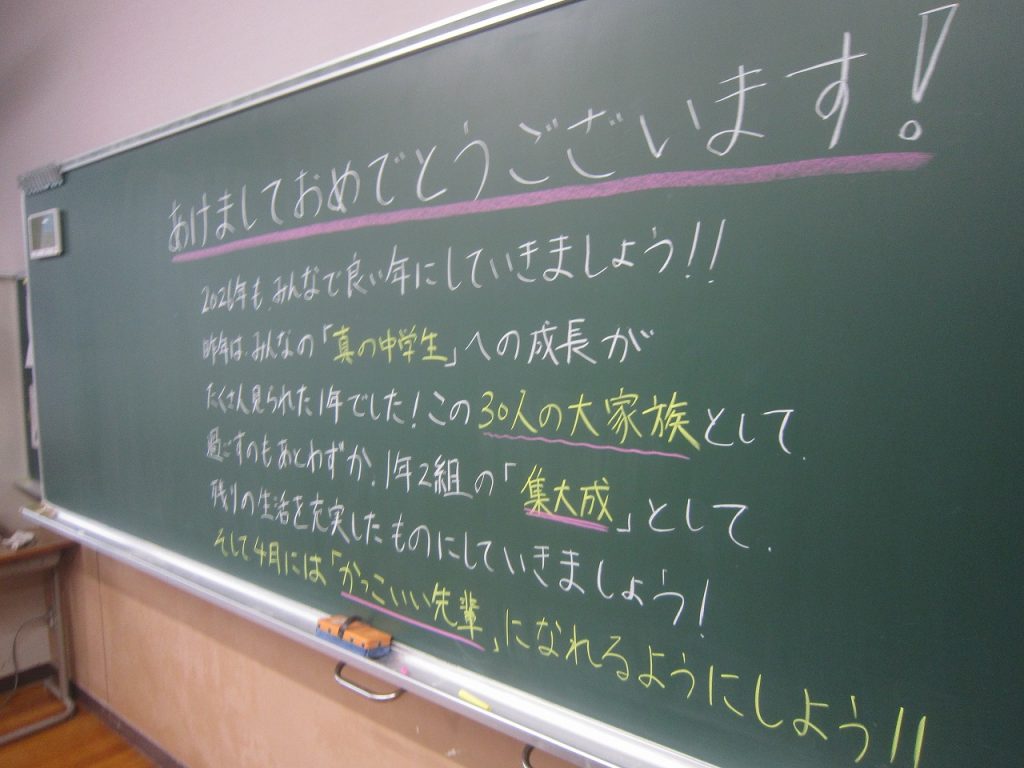 あけましておめでとうございます!
2026年も、みんなで良い年にしていきましょう!!
昨年は、みんなの「真の中学生」への成長が
たくさん見られた1年でした!この30人の大家族として、
過ごすのもあとわずか、1年2組の「集大成」として、
残りの生活を充実したものにしていきましょう!
そして4月には「かっこいい先輩」になれるようにしよう!!